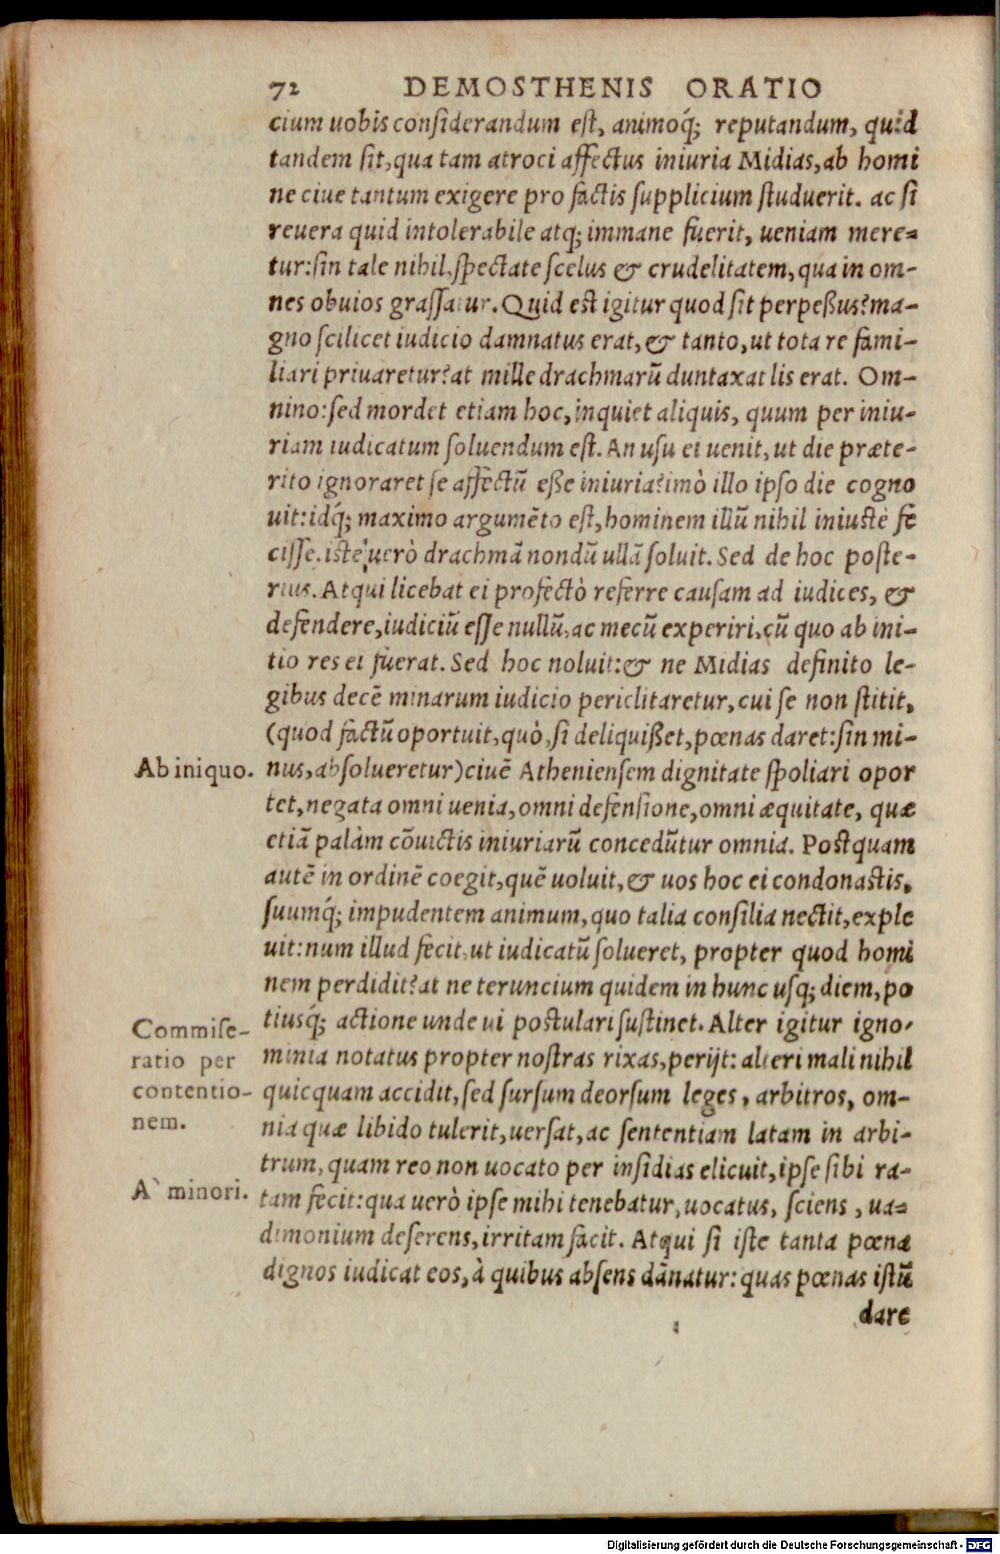 72 DEMOSTHENIS ORATIO
cium uobis considerandum est, animoq́; reputandum, quid
tandem sit, qua tam atroci affectus iniuria Midias, ab homi
ne ciue tantum exigere pro factis supplicium studuerit. ac si
reuera quid intolerabile atq; immane fuerit, ueniam mere=
tur: sin tale nihil, spectate scelus & crudelitatem, qua in om-
nes obuios grassatur. Quid est igitur quod sit perpeßus? ma-
gno scilicet iudicio damnatus erat, & tanto, ut tota re fami-
liari priuaretur? at mille drachmarũ duntaxat lis erat. Om-
nino: sed mordet etiam hoc, inquiet aliquis, quum per iniu-
riam iudicatum soluendum est. An usu ei uenit, ut die præte-
rito ignoraret se affectũ eße iniuria? imò illo ipso die cogno
uit: idq́; maximo argumẽto est, hominem illũ nihil iniustè fe
cisse. iste uerò drachmã nondũ ullã soluit. Sed de hoc poste-
rius. Atqui licebat ei profectò referre causam ad iudices, &
defendere, iudiciũ esse nullũ, ac mecũ experiri, cũ quo ab ini-
tio res ei fuerat. Sed hoc noluit: & ne Midias definito le-
gibus decẽ minarum iudicio periclitaretur, cui se non stitit,
(quod factũ oportuit, quò, si deliquißet, pœnas daret: sin mi-
Ab iniquo. nus, absolueretur) ciuẽ Atheniensem dignitate spoliari opor
tet, negata omni uenia, omni defensione, omni æquitate, quæ
etiã palàm cõuictis iniuriarũ concedũtur omnia. Postquam
autẽ in ordinẽ coegit, quẽ uoluit, & uos hoc ei condonastis,
suumq́; impudentem animum, quo talia consilia nectit, exple
uit: num illud fecit, ut iudicatũ solueret, propter quod homi
nem perdidit? at ne teruncium quidem in hunc usq; diem, po
Commise-
ratio per
contentio-
nem.
tiusq́; actione unde ui postulari sustinet. Alter igitur igno-
minia notatus propter nostras rixas, perijt: alteri mali nihil
quicquam accidit, sed sursum deorsum leges, arbitros, om-
nia quæ libido tulerit, uersat, ac sententiam latam in arbi-
trum, quam reo non uocato per insidias elicuit, ipse sibi ra-
A` minori. tam fecit: qua uerò ipse mihi tenebatur, uocatus, sciens, ua=
dimonium deserens, irritam facit. Atqui si iste tanta pœna
dignos iudicat eos, à quibus absens dãnatur: quas pœnas istũ
dare
Digitalisierung gefördert durch die Deutsche Forschungsgemeinschaft - DFG